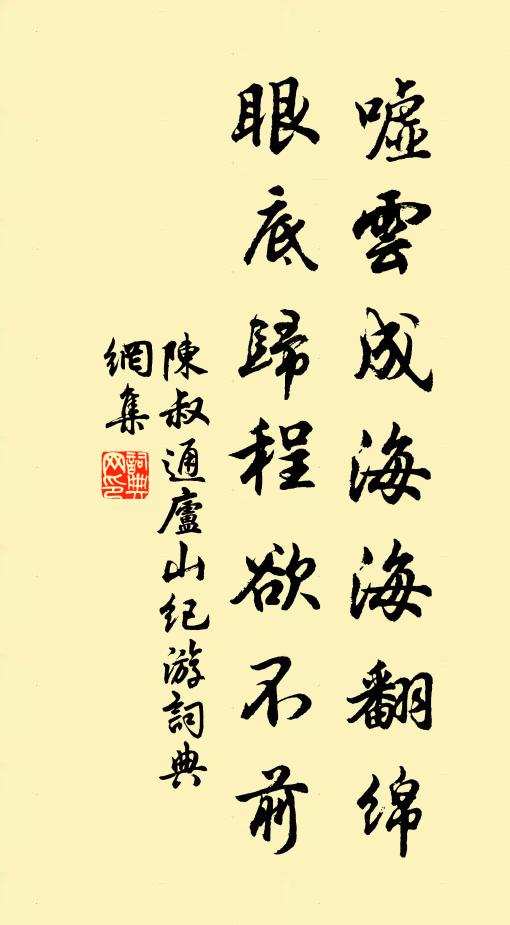 嘘雲成海海翻綿
眼底歸程欲不前
陳叔通廬山纪游詞典
網集
詞典
网印